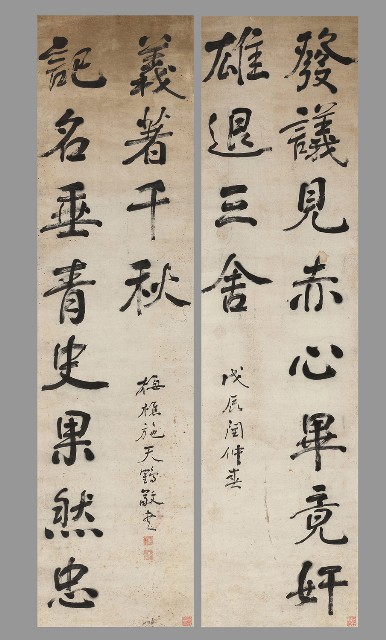 發議見赤心畢竟奸
雄退三舍
戊辰閏仲春
記名垂青史果然忠
義著千秋
梅樵施天鶴敬書